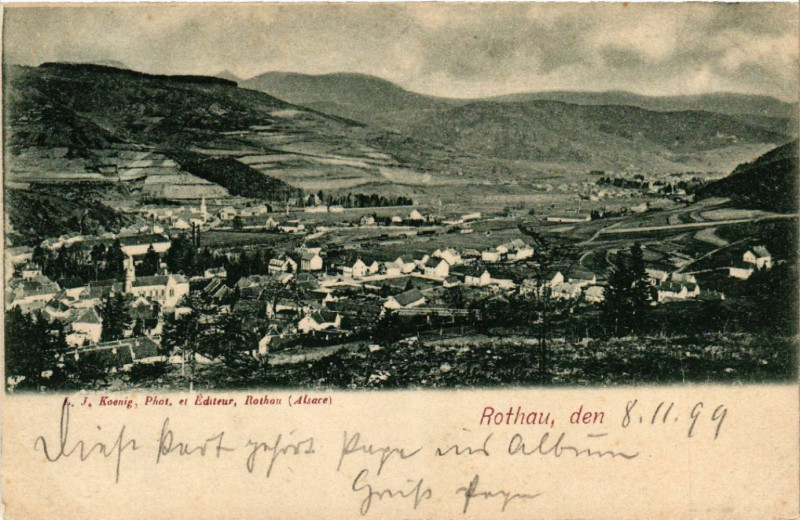 L. J. Koenig, Phot. et Éditeur, Rothau (Alsace)
Rothau, den 8.11.99
Diese Kart gehört Papa ins Album
Gruß Papa